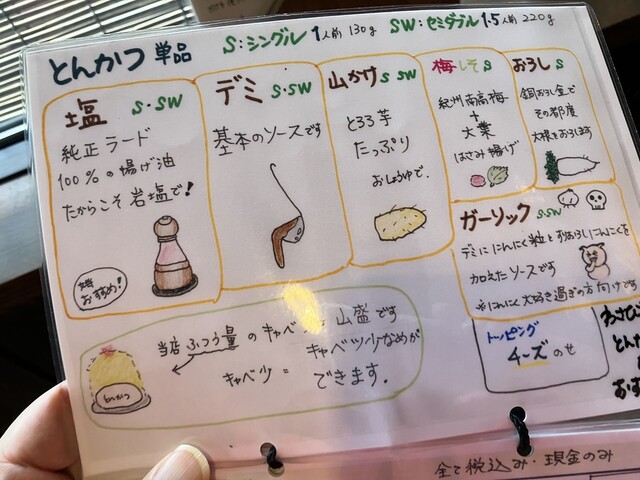 とんかつ 単品
S:シングル 1人前 130g
SW:セミダブル 1.5人前 220g
塩 S・SW
純正ラード
100%の揚げ油
だからこそ岩塩で!
おすすめ!
デミ S・SW
基本のソースです
山かけ S SW
とろろ芋
たっぷり
おしょうゆで.
梅しそ S
紀州南高梅
+
大葉
はさみ揚げ
おろし S
銅おろし金で
その都度
大根をおろします
ガーリック S SW
デミににんにく粒とすりおろしにんにくを
加えたソースです
※にんにく大好き過ぎの方向けです
当店ふつう量のキャベツ 山盛です
キャベ少 = キャベツ少なめが
できます.
とんかつ
トッピング
チーズのせ
とんか
全て税込み・現金のみ